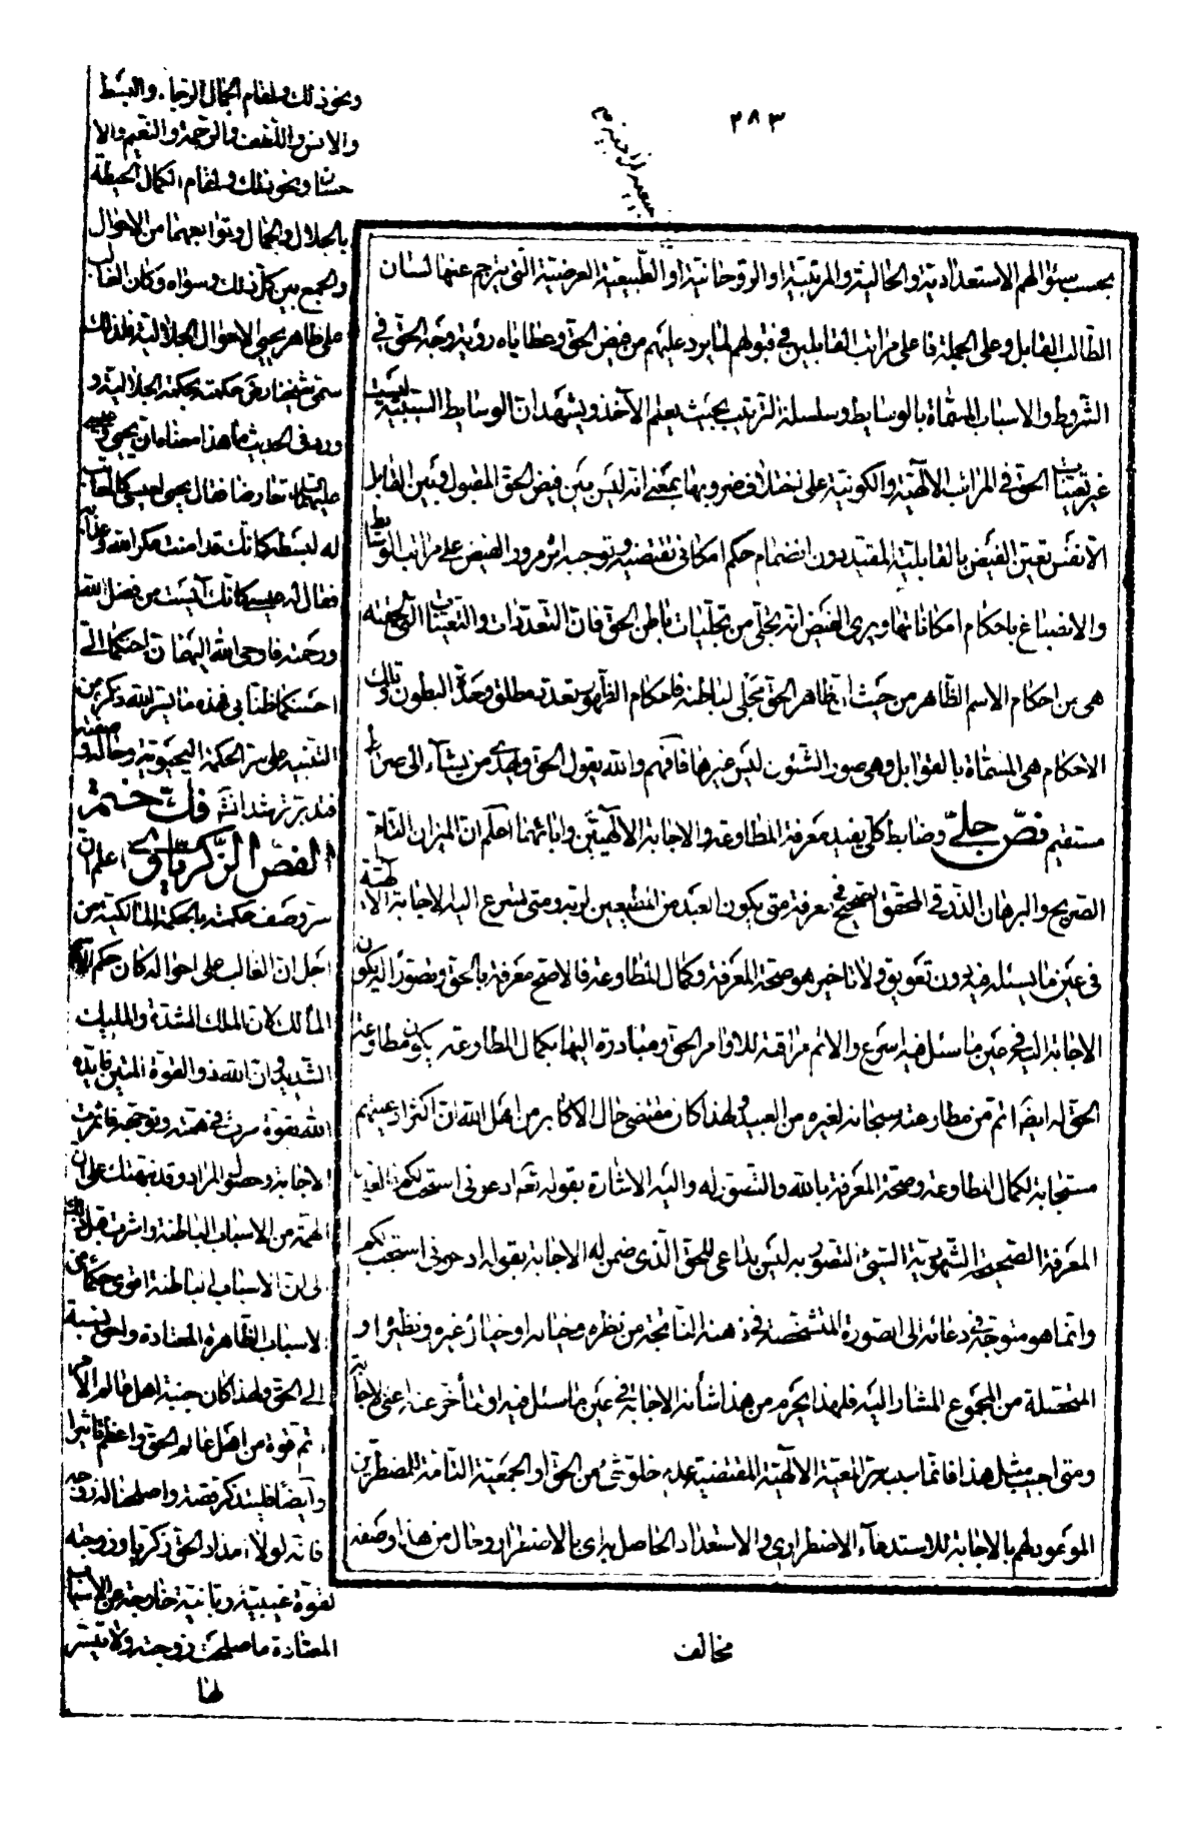 ٢٨٣
بحسب سئوالهم الاستعدادية والحالية والمرتبية او الروحانية او الطبيعية العرضية التى يترجم عنها لسان
الطالب القابل وعلى الجملة فاعلى مراتب القابلين فى قبولهم لما يرد عليهم من فيض الحق وعطاياه رؤية وجه الحق فى
الشروط والاسباب المسماة بالوسايط وسلسلة الترتيب بحيث يعلم الآخذ ويشهد ان الوسايط السببية ليست
غير تعينات الحق فى المراتب الالهية والكونية على اختلاف ضروبها بمعنى انه ليس بين فيض الحق المقبول وبين القابل
الا نفس تعين الفيض بالقابلية المقيد بدون انضمام حكم امكانى يقتضيه ويوجبه اثر مرور الفيض على مراتب الوسائط
والانصباغ باحكام امكاناتها ويرى الفيض انه تجلى من تجليات باطن الحق فان التعددات والتعينات التى لحقته
هى من احكام الاسم الظاهر من حيث ان ظاهر الحق مجلى لباطنه فاحكام الظهور تعدد مطلق وحدة البطون وتلك
الاحكام هى المسماة بالقوابل وهى صور الشئون ليس غيرها فافهم والله يقول الحق ويهدى من يشآء الى صراط
مستقيم نص جلى وضابط كلى يفيد معرفة المطاوعة والاجابة الالهيتين وابائهما اعلم ان الميزان التام
الصريح والبرهان الذوقى المحقق الصحيح فى معرفة متى يكون العبد من المطيعين لربه ومتى يسرع اليه الاجابة الالهية
فى عين ما يسئله فيه بدون تعويق ولا تاخير هو صحة المعرفة وكمال المطاوعة فالاصح معرفة بالحق وتصورا له يكون
الاجابة اليه فى عين ما سئل فيه اسرع والاتم مراقبة للاوامر الحق ومبادرة اليها بكمال المطاوعة يكون مطاوعة
الحق له ايضا اتم من مطاوعته سبحانه لغيره من العبيد ولهذا كان مقتضى حال الاكابر من اهل الله ان اكثر ادعيتهم
مستجابة لكمال المطاوعة وصحة المعرفة بالله والتصور له واليه الاشارة بقوله تعالى ادعونى استجب لكم
المعرفة الصحيحة الشهودية السيئ التصور به ليس بداعى للحق الذى ضمن له الاجابة بقوله ادعونى استجب لكم
وانما هو متوجه فى دعائه الى الصورة المتشخصة فى ذهنه الناتجة من نظره وخياله او خيال غيره ونظره او
المتحصلة من المجموع المشار اليه فلهذا يحرم من هذا شأنه الاجابة فى عين ما سئل فيه او يتأخر عنه اعنى الاجابة
ومتى اجيب مثل هذا فانما سببه سر المعية الالهية المقتضية عدم خلو شئ من الحق او الجمعية التامة للمضطرين
الموعود لهم بالاجابة للاستدعآء الاضطرارى والاستعداد الحاصل به اى بالاضطرار وحال من هذا وصفه
مخالف
ونحو ذلك ولمقام الجمال الرجاء والبسط
والانس واللطف والرحمة والنعيم والا
حسان ونحو ذلك ولمقام الكمال الحيطة
بالجلال والجمال وتوابعهما من الاحوال
والجمع بين كل ذلك وسواه وكان الغالب
على ظاهر يحيى الاحوال الجلالية فلذلك
حكمته بحكمة الجلالية و
ورد فى الحديث ما هذا معناه ان يحيى وعيسى
عليهما السلام تفاوضا فقال يحيى لعيسى كالمعاتب
له لبسطه كانك قد امنت مكر الله وعذابه
فقال له عيسى كانك آيست من فضل الله
ورحمته فاوحى الله اليهما ان احبكما الى
احسنكما ظنا بى فهذه ما يسر الله ذكره من
التنبيه على سر الحكمة اليحيوية وحاله وصفته
فتدبر ترشد انش فك ختم
الفص الزكرياوى اعلم ان
سر وصف حكمته بالحكمة المالكية من
اجل ان الغالب على احواله كان حكم الاسم
المالك لان الملك الشدة والمليك
الشديد وان الله ذو القوة المتين فايده
الله بقوة سرت فى همته وتوجهه فاثمرت
الاجابة وحصول المراد وقد نبهتك على ان
الهمة من الاسباب الباطنة واشرت قبل ذلك
الى ان الاسباب الباطنة اقوى حكما من
الاسباب الظاهرة المعتادة واحق نسبة
الى الحق ولهذا كان جنبة اهل عالم الامر
اتم قوة من اهل عالم الخلق واعظم تاثيرا
وايضا فليتذكر قصته واصلحنا له زوجه
فانه لولا امداد الحق زكريا وزوجته
بقوة غيبية ربانية خارجة عن الاسباب
المعتادة ما صلحت زوجته ولا تيسر
لها